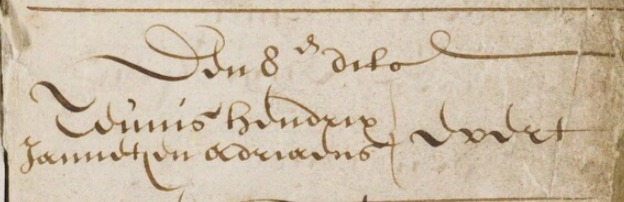 Den 8 en dito
Teunis hendrix
Jannetien Adriaens evert